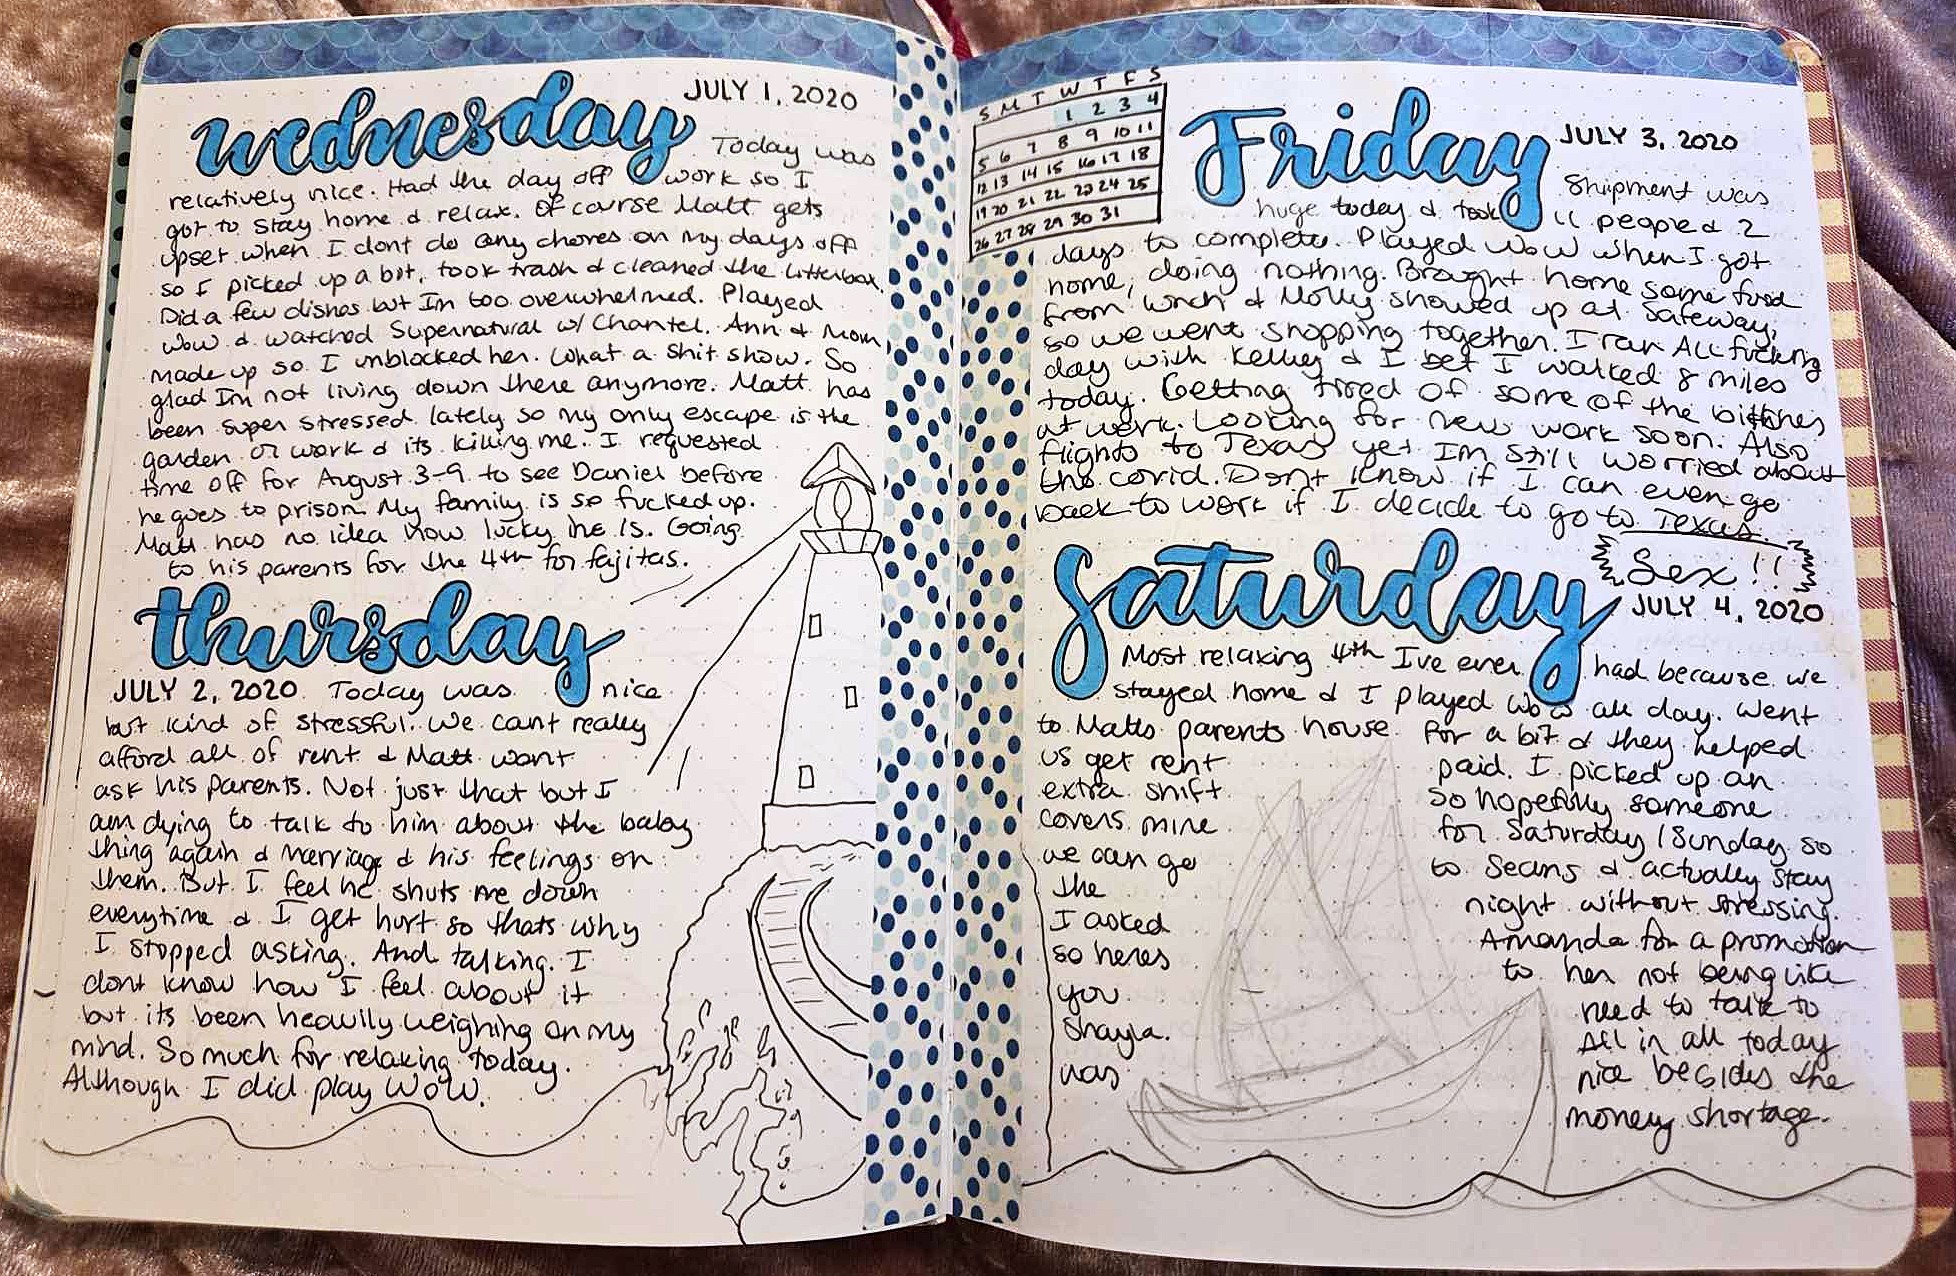 JULY 1, 2020
wednesday
Today was
relatively nice. Had the day off work so I
got to stay home & relax. Of course Matt gets
upset when I dont do any chores on my days off
so I picked up a bit, took trash & cleaned the litterbox.
Did a few dishes but Im too overwhelmed. Played
WoW & watched Supernatural w/ Chantel. Ann & Mom
made up so I unblocked her. What a shit show. So
glad Im not living down there anymore. Matt has
been super stressed lately so my only escape is the
garden or work & its killing me. I requested
time off for August 3-9 to see Daniel before
he goes to prison. My family is so fucked up.
Matt has no idea how lucky he is. Going
to his parents for the 4th for fajitas.
thursday
JULY 2, 2020. Today was nice
but kind of stressful. We cant really
afford all of rent & Matt wont
ask his parents. Not just that but I
am dying to talk to him about the baby
thing again & marriage & his feelings on
them. But I feel he shuts me down
everytime & I get hurt so thats why
I stopped asking. And talking. I
dont know how I feel about it
but its been heavily weighing on my
mind. So much for relaxing today.
Although I did play WoW.
S M T W T F S
1 2 3 4
5 6 7 8 9 10 11
12 13 14 15 16 17 18
19 20 21 22 23 24 25
26 27 28 29 30 31
Friday
JULY 3, 2020
Shipment was
huge today & took 11 people & 2
days to complete. Played WoW when I got
home, doing nothing. Brought home some food
from lunch & Molly showed up at Safeway,
so we went shopping together. I ran All fucking
day with Kelley & I bet I walked 8 miles
today. Getting tired of some of the bitches
at work. Looking for new work soon. Also
flights to Texas yet Im still worried about
the covid. Dont know if I can even go
back to work if I decide to go to Texas.
Sex!!
saturday
JULY 4, 2020
Most relaxing 4th Ive ever had because we
stayed home & I played WoW all day. Went
to Matts parents house for a bit & they helped
us get rent paid. I picked up an
extra shift so hopefully someone
covers mine for Saturday/Sunday so
we can go to Seans & actually stay
the night without stressing.
I asked Amanda for a promotion
so heres to her not being like
you need to talk to
Shayla. All in all today
was nice besides the
money shortage.